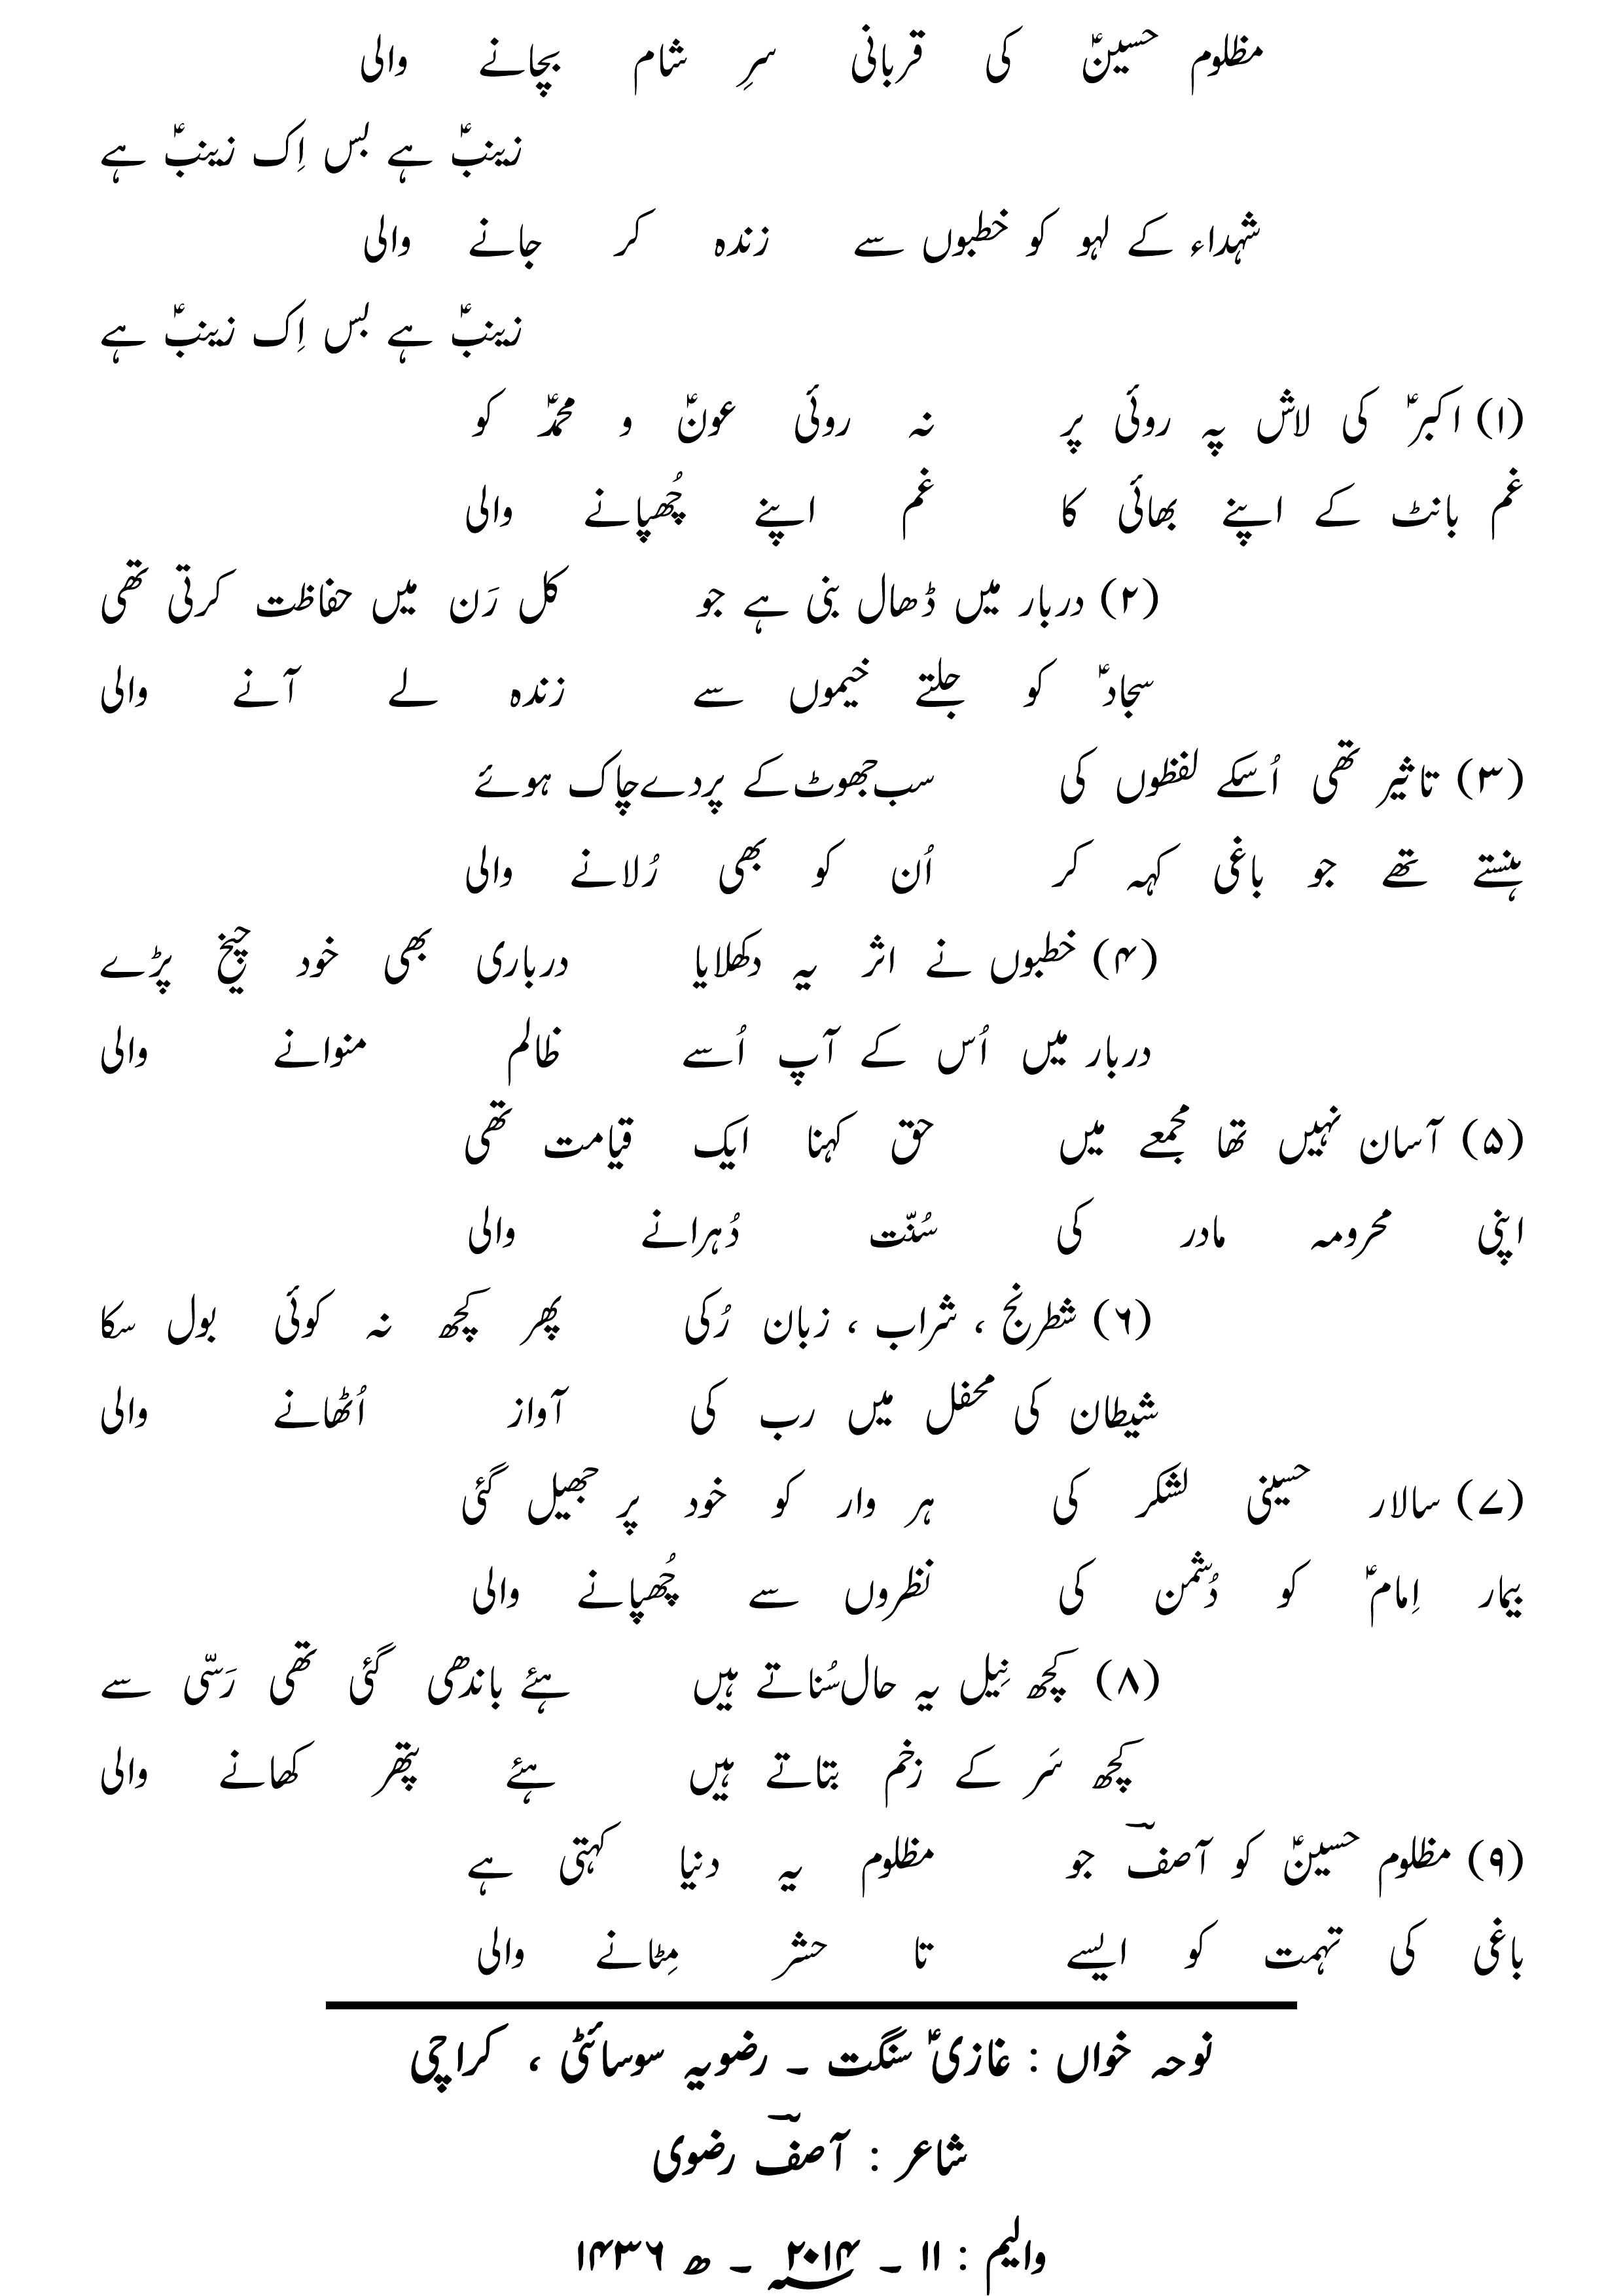 مظلوم حسینؑ کی قربانی سرِ شام بچانے والی
زینبؑ ہے بس اِک زینبؑ ہے
شہداء کے لہو کو خطبوں سے زندہ کر جانے والی
زینبؑ ہے بس اِک زینبؑ ہے
(۱) اکبرؑ کی لاش پہ روئی پر نہ روئی عونؑ و محمدؑ کو
غم بانٹ کے اپنے بھائی کا غم اپنے چُھپانے والی
(۲) دربار میں ڈھال بنی ہے جو کل رَن میں حفاظت کرتی تھی
سجادؑ کو جلتے خیموں سے زندہ لے آنے والی
(۳) تاثیر تھی اُسکے لفظوں کی سب جھوٹ کے پردے چاک ہوئے
ہنستے تھے جو باغی کہہ کر اُن کو بھی رُلانے والی
(۴) خطبوں نے اثر یہ دکھلایا درباری بھی خود چیخ پڑے
دربار میں اُس کے آپ اُسے ظالم منوانے والی
(۵) آسان نہیں تھا مجمعے میں حق کہنا ایک قیامت تھی
اپنی محرومہ مادر کی سُنّت دُہرانے والی
(۶) شطرنج ، شراب ، زبان رُکی پھر کچھ نہ کوئی بول سکا
شیطان کی محفل میں رب کی آواز اُٹھانے والی
(۷) سالار حسینی لشکر کی ہر وار کو خود پر جھیل گئی
بیمار اِمامؑ کو دُشمن کی نظروں سے چُھپانے والی
(۸) کچھ نِیل یہ حال سُناتے ہیں ہئے باندھی گئی تھی رَسّی سے
کچھ سَر کے زخم بتاتے ہیں ہئے پتھر کھانے والی
(۹) مظلوم حسینؑ کو آصفؔ جو مظلوم یہ دنیا کہتی ہے
باغی کی تہمت کو ایسے تا حشر مِٹانے والی
نوحہ خواں : غازیؑ سنگت ۔ رضویہ سوسائٹی ، کراچی
شاعر : آصفؔ رضوی
والیم : ۱۱ ۔ ۲۰۱۴؁ ۔ ھ ۱۴۳۶